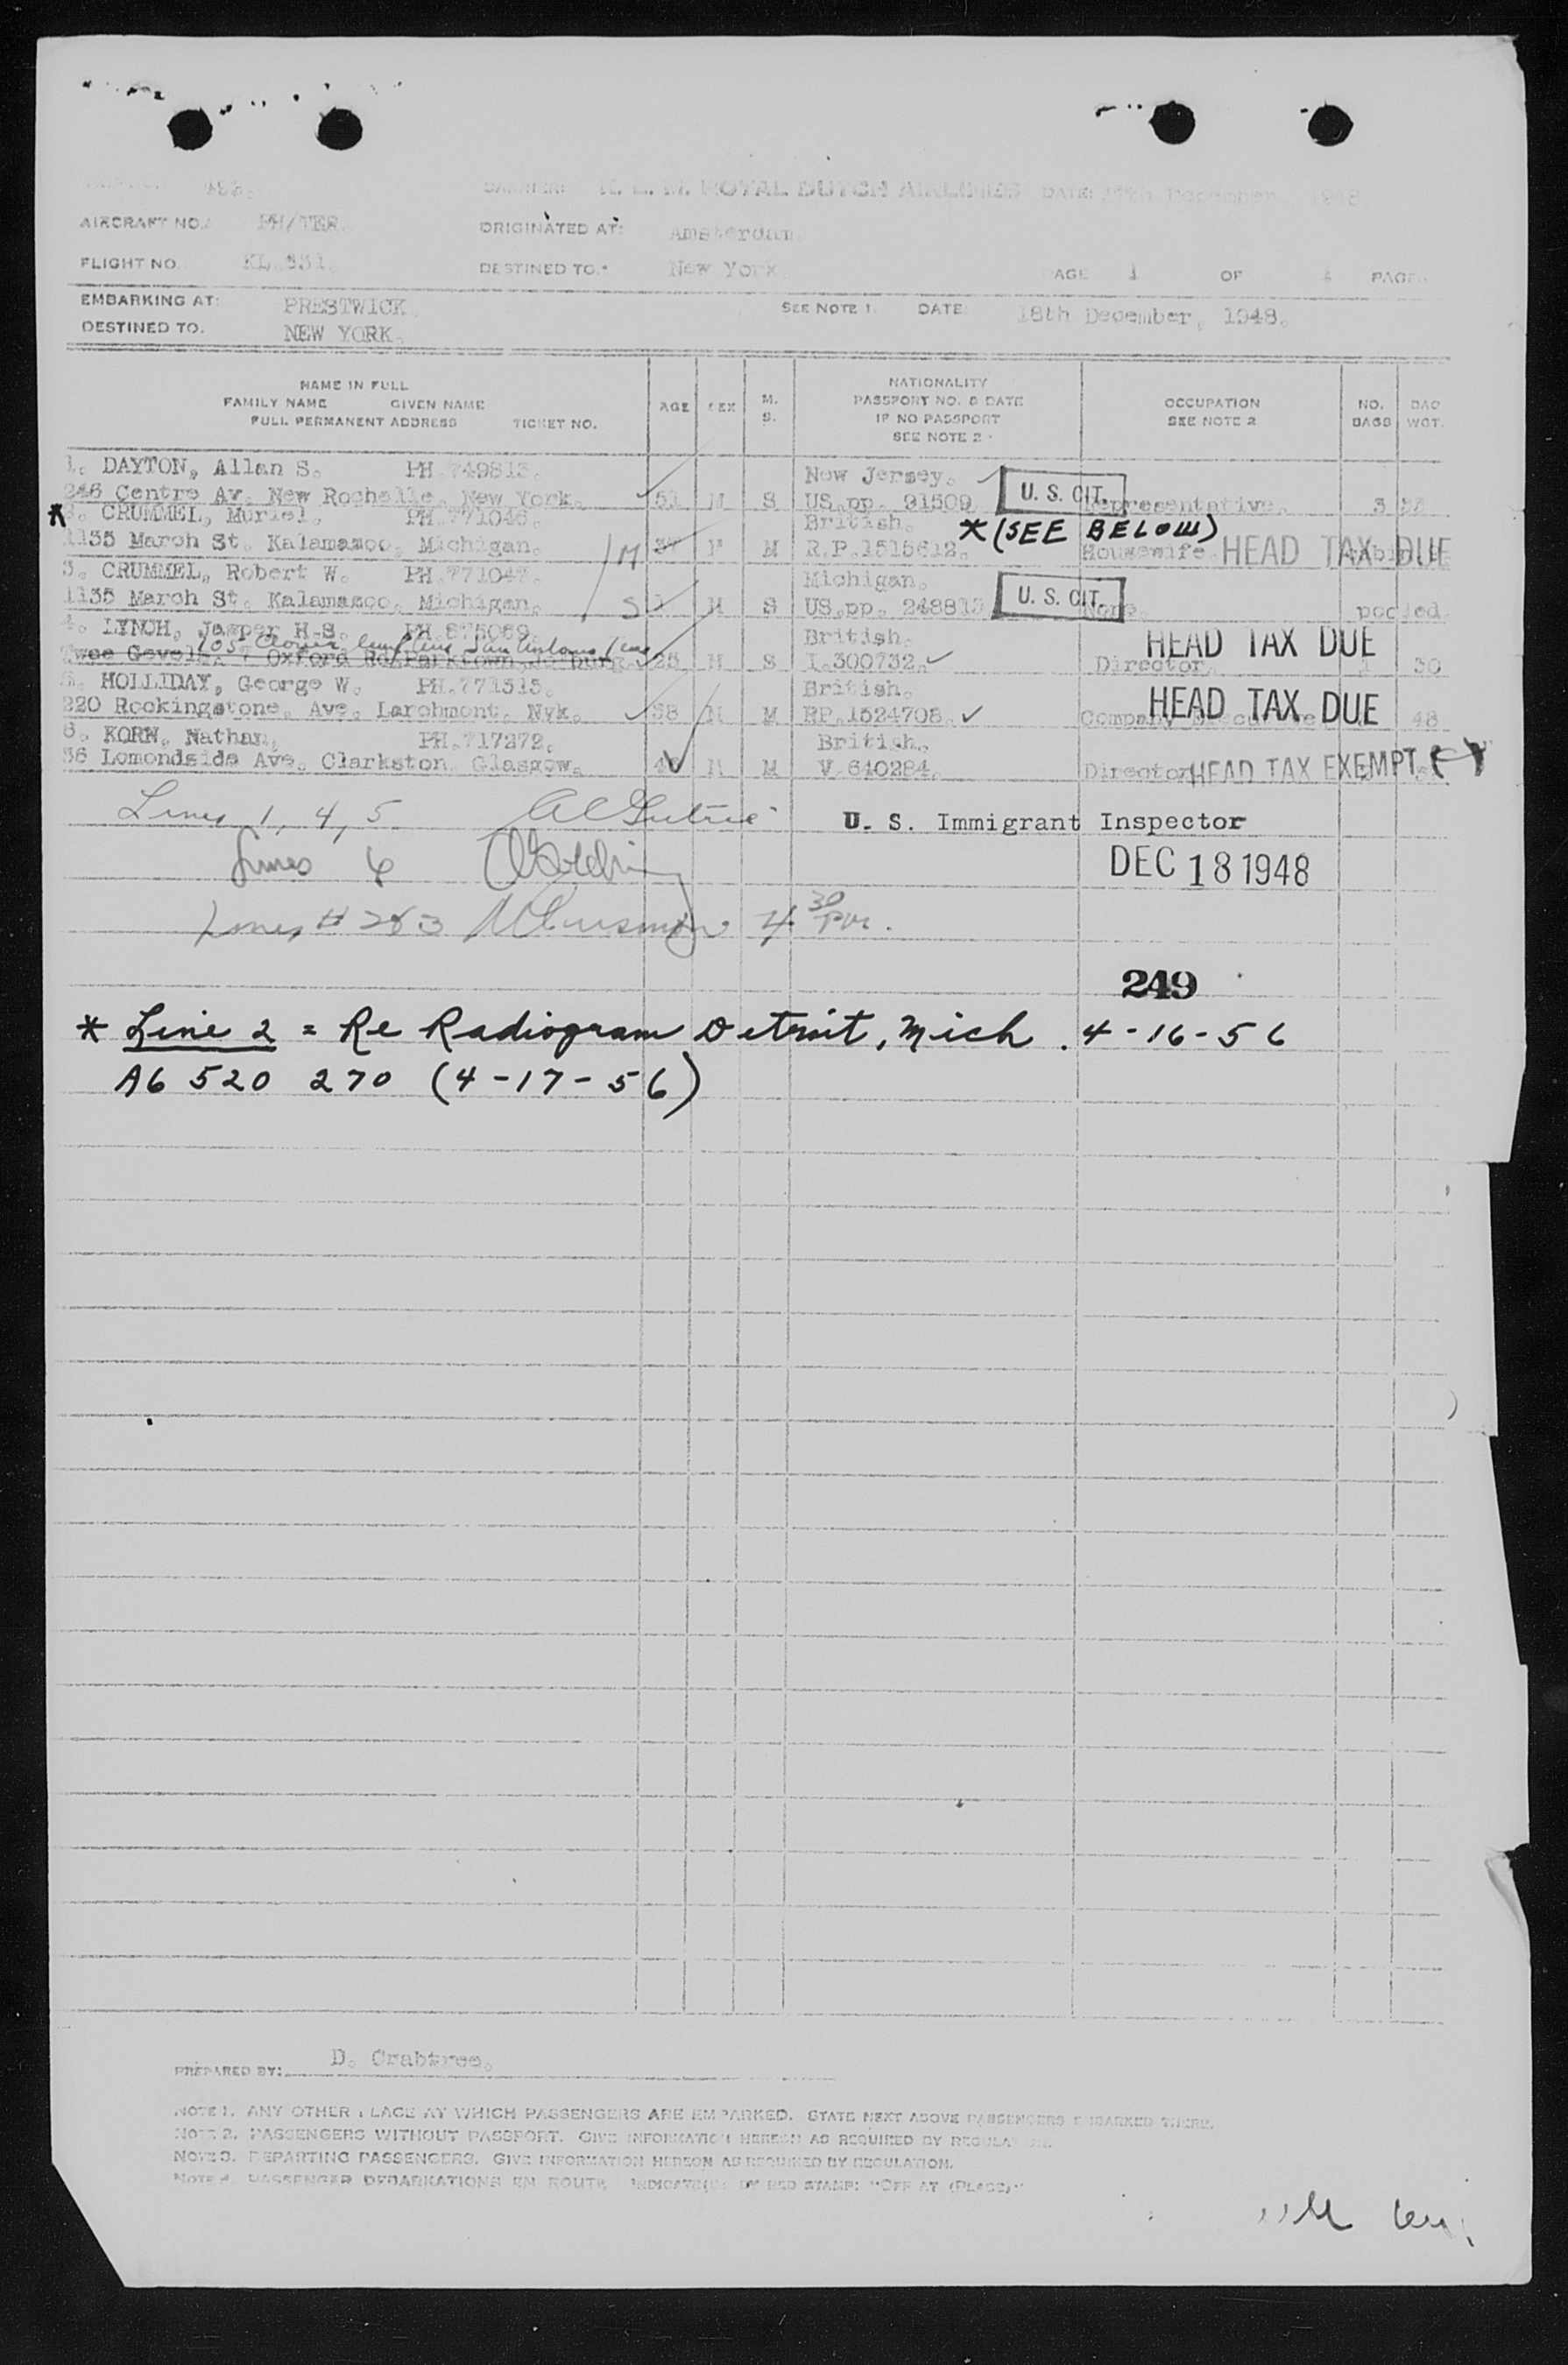 CARRIER: K. L. M. ROYAL DUTCH AIRLINES DATE: December, 1948
AIRCRAFT NO. PH/TER. ORIGINATED AT: Amsterdam.
FLIGHT NO. KL 631. DESTINED TO: New York. PAGE 1 OF PAGE
EMBARKING AT: PRESTWICK. SEE NOTE 1. DATE 18th December, 1948.
DESTINED TO. NEW YORK.
NAME IN FULL
FAMILY NAME GIVEN NAME
FULL PERMANENT ADDRESS TICKET NO.
AGE SEX M. S.
NATIONALITY
PASSPORT NO. & DATE
IF NO PASSPORT
SEE NOTE 2
OCCUPATION
SEE NOTE 2
NO. BAGS
BAG WGT.
1. DAYTON, Allan S. PH 749813. New Jersey.
246 Centre Av. New Rochelle, New York. 51 M S US.pp. 91509 U. S. CIT. Representative. 3
* 2. CRUMMEL, Muriel. PH 771046. British. * (SEE BELOW)
1135 March St. Kalamazoo, Michigan. M F M R.P.1515612. Housewife. HEAD TAX DUE
3. CRUMMEL, Robert W. PH 771047. Michigan.
1135 March St. Kalamazoo, Michigan. S M S US.pp. 248813 U. S. CIT. None. pooled.
4. LYNCH, Jasper H.S. PH 675069. British. HEAD TAX DUE
San Antonio
Oxford Rd. Parktown 25 M S I.300732. Director. 1 30
5. HOLLIDAY, George W. PH.771515. British. HEAD TAX DUE
220 Rockingstone. Ave. Larchmont. Nyk. 58 M M RP.1524708. Company 48
6. KORN, Nathan. PH.717272. British.
36 Lomondside Ave. Clarkston Glasgow. M M V 640284. Director HEAD TAX EXEMPT
Lines 1, 4, 5 U. S. Immigrant Inspector
Lines 6 DEC 18 1948
Lines # 2&3 4 30 Pm.
249
* Line 2 = Re Radiogram Detroit, Mich. 4-16-56
A6 520 270 (4-17-56)
PREPARED BY: D. Crabtree.
NOTE 1. ANY OTHER PLACE AT WHICH PASSENGERS ARE EMBARKED. STATE NEXT ABOVE PASSENGERS EMBARKED THERE.
NOTE 2. PASSENGERS WITHOUT PASSPORT. GIVE INFORMATION HEREON AS REQUIRED BY
NOTE 3. DEPARTING PASSENGERS. GIVE INFORMATION HEREON AS REQUIRED BY REGULATION.
NOTE 4. PASSENGER DEBARKATIONS EN ROUTE INDICATED BY RED STAMP: "OFF AT (PLACE)"